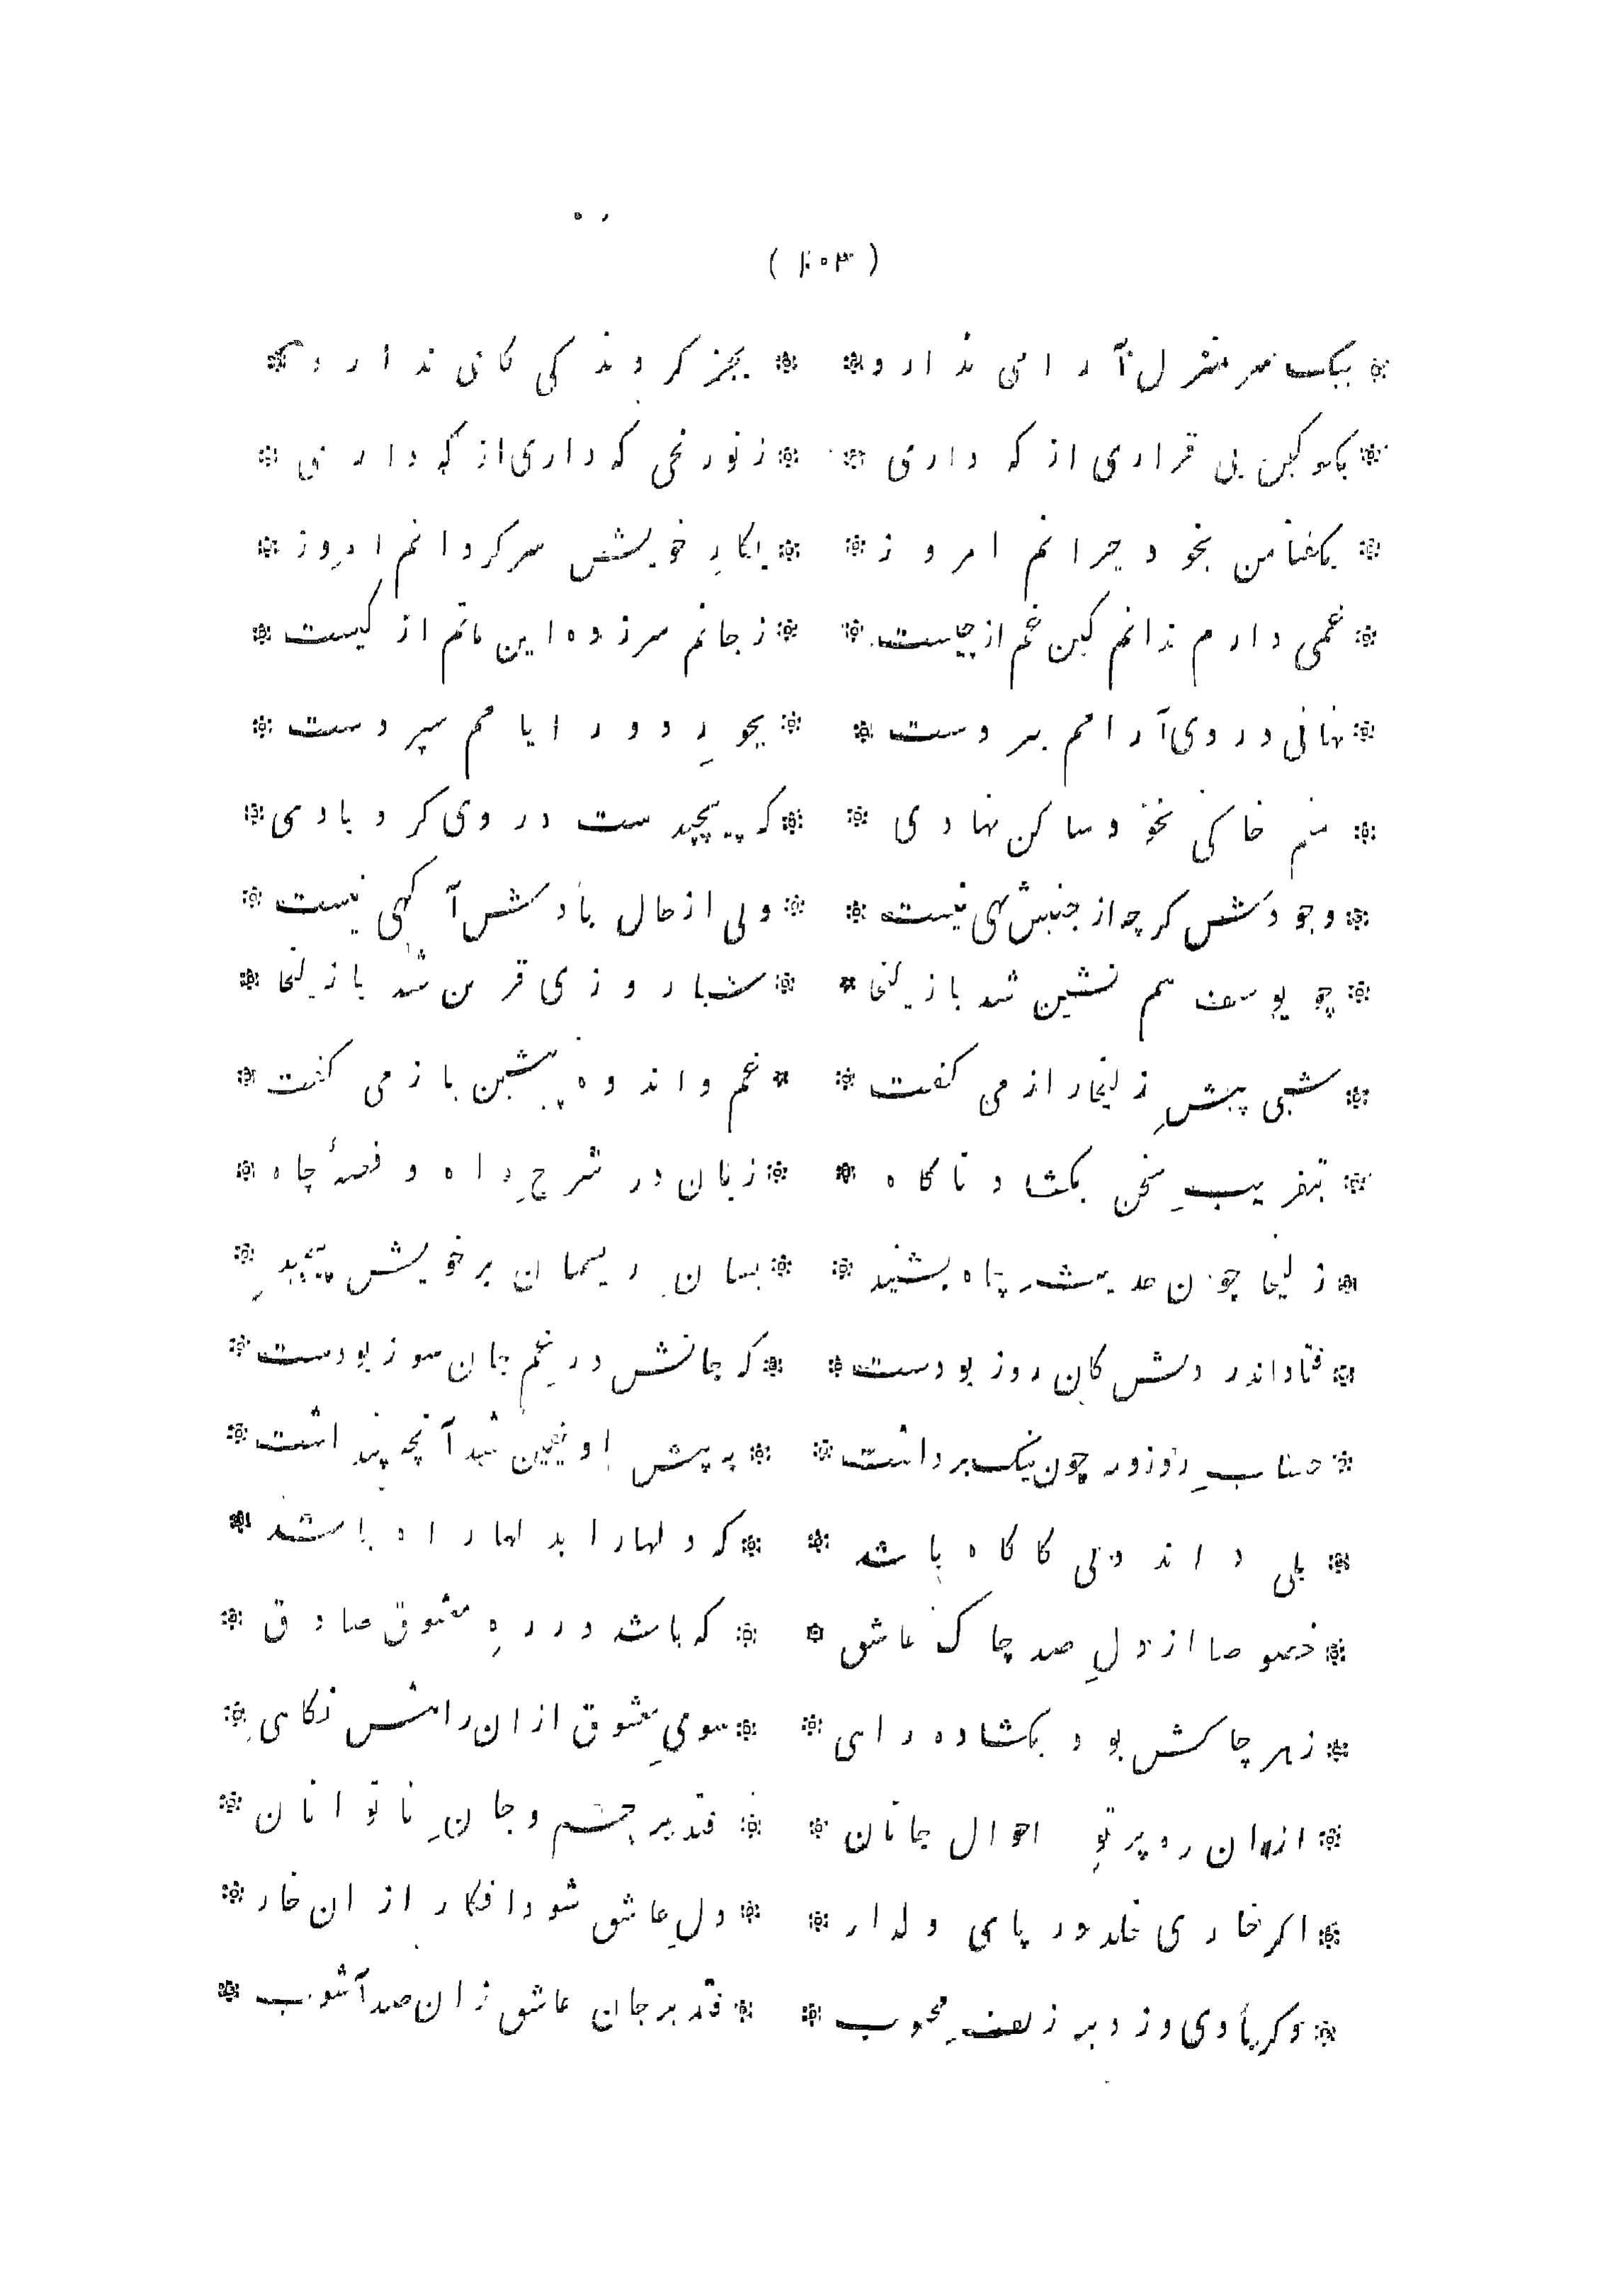 ( ۱۰۳ )
* بیک سر منزل آرامی ندارد * * بجز کردندکی کامی ندارد *
* بکو کین بی قراری از که داری * * ز نو رنجی که داری از که داری *
* بکفتا من بخود حیرانم امروز * * بکارِ خویش سرکردانم امروز *
* غمی دارم ندانم کین غم از چیست * * ز جانم سرزده این ماتم از کیست *
* نهانی دردی آرامم ببردست * * بجورِ دورِ ایامم سپردست *
* منم خاکی بخود ساکن نهادی * * که پیچیدست در وی کردبادی *
* وجودش کرچه از جنبش تهی نیست * * ولی از حال بادش آکهی نیست *
* چو یوسف هم نشین شد با زلیخا * * شبا روزی قرین شد با زلیخا *
* شبی پیشِ زلیخا راز می کفت * * غم و اندوه پیشین باز می کفت *
* بتقریبِ سخن بکشاد ناکاه * * زبان در شرحِ راه و قصهٔ چاه *
* زلیخا چون حدیث چاه بشنید * * بسانِ ریسمان بر خویش پیچید *
* فتاد اندر دلش کان روز بودست * * که جانش در غمِ جان سوز بودست *
* حسابِ روز و ر چون نیک برداشت * * به پیش او یقین شد آنچه پنداشت *
* بلی داند دلی کاکاه باشد * * که دلها را بدلها راه باشد *
* خصوصا از دلِ صد چاک عاشق * * که باشد در رهِ معشوق صادق *
* ز هر چاکش بود بکشاده راهی * * سویِ معشوق ازان راهش نکاهی *
* ازان ره پرتوِ احوال جانان * * فتد بر چشم و جانِ ناتوانان *
* اکر خاری خلد در پای دلدار * * دلِ عاشق شود افکار ازان خار *
* وکر بادی وزد بر زلفِ محبوب * * فتد بر جان عاشق زان صد آشوب *